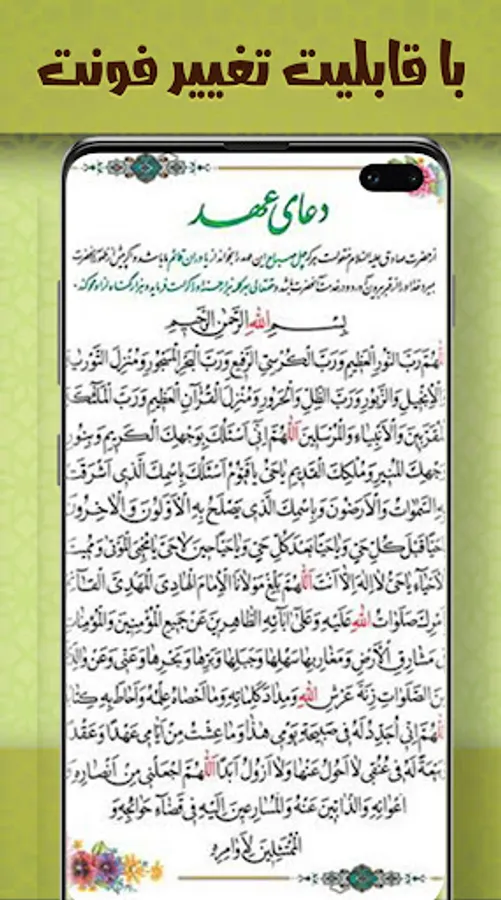 با قابلیت تغییر فونت
دعای عهد
از حضرت صادق علیه السلام منقولست هر که چهل صباح این عهد را بخواند از یاوران قائم ما باشد و اگر پیش از ظهور آنحضرت
بمیرد خدا او را از قبر بیرون آورد و در خدمت آنحضرت باشد و حقتعالی بهر کلمه هزار حسنه او را کرامت فرماید و هزار گناه از او محو کند.
بِسْمِ اللهِ الرَّحْمنِ الرَّحِيمِ
هُمَّ رَبَّ النُّورِ الْعَظيمِ وَرَبَّ الْكُرْسِيِّ الرَّفيعِ وَرَبَّ الْبَحْرِ الْمَسْجُورِ وَمُنْزِلَ التَّوْريٰ
الْإِنْجيلِ وَالزَّبُورِ وَرَبَّ الظِّلِّ وَالْحَرُورِ وَمُنْزِلَ الْقُرْآنِ الْعَظيمِ وَرَبَّ الْمَلٰٓئِكَ
لْمُقَرَّبينَ وَالْأَنْبِيٰآءِ وَالْمُرْسَلينَ اَللّٰهُمَّ اِنّي اَسْئَلُكَ بِوَجْهِكَ الْكَريمِ وَبِنُورِ
جْهِكَ الْمُنيرِ وَمُلْكِكَ الْقَديمِ يٰاحَيُّ يٰاقَيُّومُ اَسْئَلُكَ بِاسْمِكَ الَّذي اَشْرَقَتْ
بِهِ السَّمٰوٰاتُ وَالْأَرَضُونَ وَبِاسْمِكَ الَّذي يَصْلَحُ بِهِ الْأَوَّلُونَ وَالْآخِرُونَ
احَيًّا قَبْلَ كُلِّ حَيٍّ وَيٰاحَيًّا بَعْدَ كُلِّ حَيٍّ وَيٰاحَيًّا حينَ لٰاحَيَّ يٰامُحْيِيَ الْمَوْتٰى وَمُميتَ
الْأَحْيٰآءِ يٰاحَيُّ لٰااِلٰهَ اِلّٰا اَنْتَ اَللّٰهُمَّ بَلِّغْ مَوْلٰانَا الْإِمٰامَ الْهٰادِيَ الْمَهْدِيَّ الْقٰآئِ
اَمْرِكَ صَلَوٰاتُ اللهِ عَلَيْهِ وَعَلىٰ اٰبٰآئِهِ الطّٰاهِرينَ عَنْ جَميعِ الْمُؤْمِنينَ وَالْمُؤْمِنٰاتِ
مَشٰارِقِ الْأَرْضِ وَمَغٰارِبِهٰا سَهْلِهٰا وَجَبَلِهٰا وَبَرِّهٰا وَبَحْرِهٰا وَعَنّي وَعَنْ وٰالِدَ
نَ الصَّلَوٰاتِ زِنَةَ عَرْشِ اللهِ وَمِدٰادَ كَلِمٰاتِهِ وَمٰا اَحْصٰاهُ عِلْمُهُ وَاَحٰاطَ بِهِ كِتٰا
هُمَّ اِنّي اُجَدِّدُ لَهُ في صَبيحَةِ يَوْمي هٰذٰا وَمٰا عِشْتُ مِنْ اَيّٰامي عَهْدًا وَعَقْدً
بَيْعَةً لَهُ في عُنُقي لٰا اَحُولُ عَنْهٰا وَلٰا اَزُولُ اَبَدًا اَللّٰهُمَّ اجْعَلْني مِنْ اَنْصٰارِهِ وَ
اَعْوٰانِهِ وَالذّٰآبّينَ عَنْهُ وَالْمُسٰارِعينَ اِلَيْهِ في قَضٰآءِ حَوٰآئِجِهِ وَ
الْمُمْتَثِلينَ لِأَوٰامِرِهِ